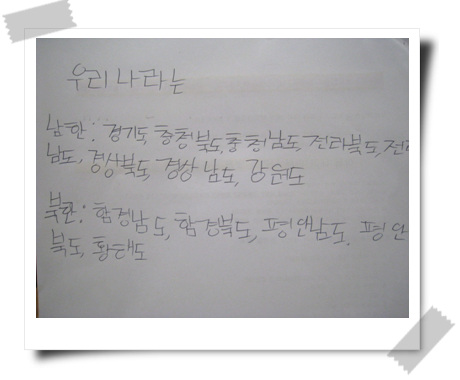 우리나라는
남한: 경기도, 충청북도, 충청남도, 전라북도, 전라
남도, 경상북도, 경상남도, 강원도
북한: 함경남도, 함경북도, 평안남도, 평안
북도, 황해도